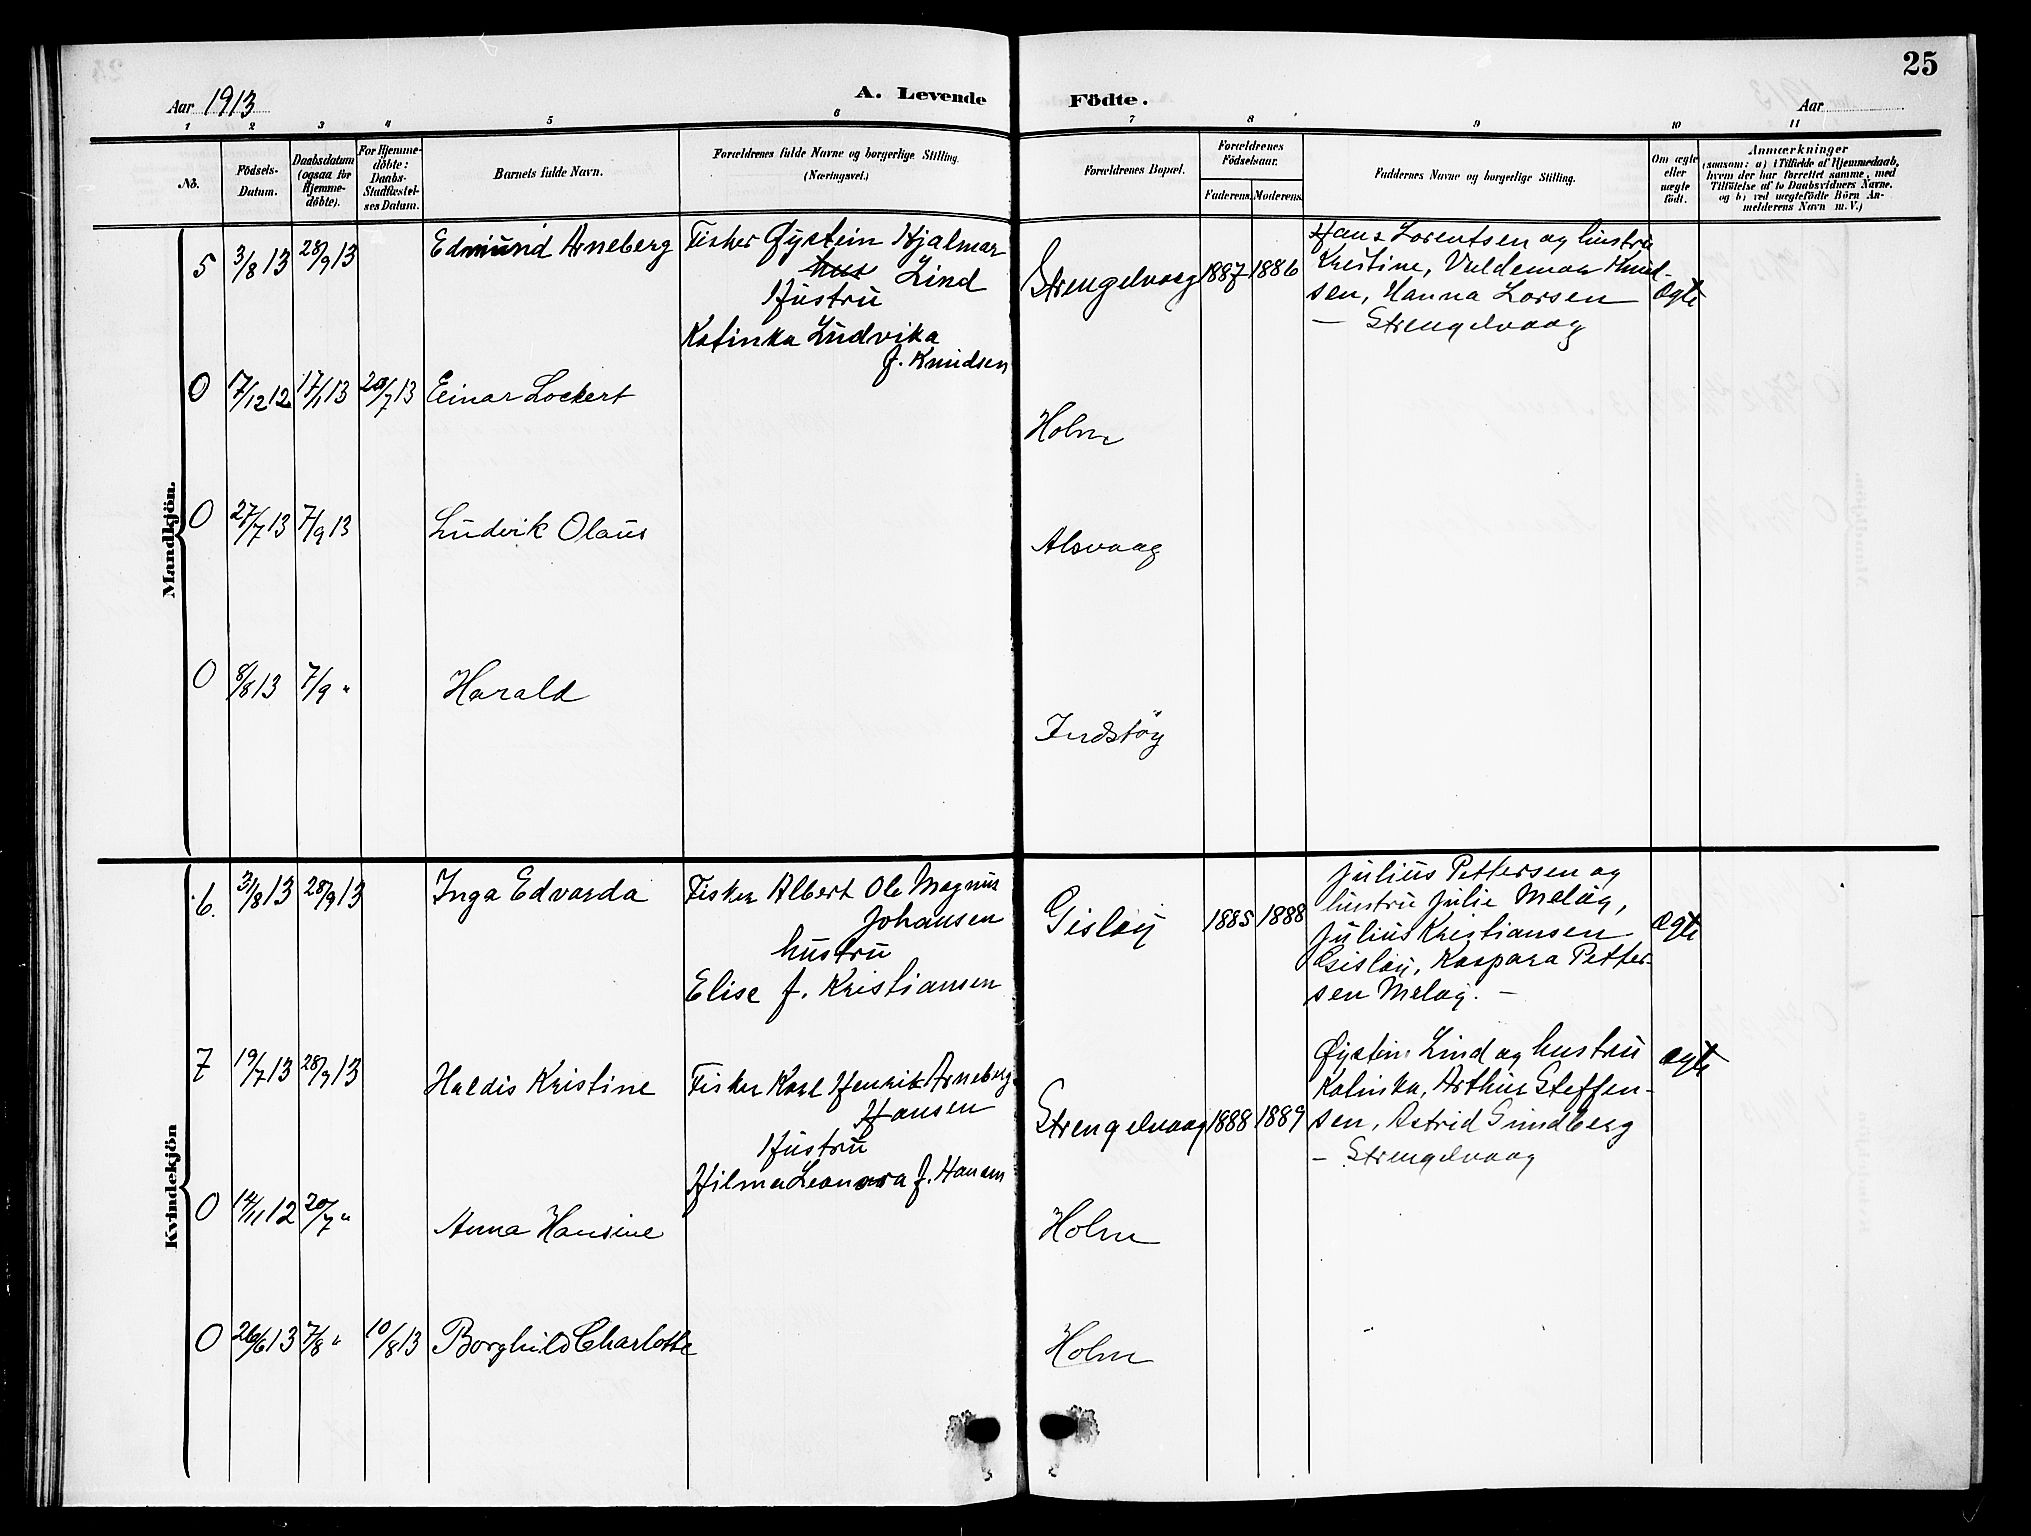 25
Aar 1913
A. Levende Födte.
Aar
1 2 3 4 5 6 7 8 9 10 11
No.
Födsels-Datum.
Daabsdatum (ogsaa for Hjemme-döbte).
For Hjemme-döbte: Daabs-Stadfæstel-ses Datum.
Barnets fulde Navn.
Forældrenes fulde Navne og borgerlige Stilling.
(Næringsvei.)
Forældrenes Bopæl.
Forældrenes Födselsaar.
Faderens. Moderens.
Faddernes Navne og borgerlige Stilling.
Om ægte eller uægte födt.
Anmærkninger
(saasom: a) i Tilfælde af Hjemmedaab,
hvem der har forrettet samme, med
Tilföielse af to Daabsvidners Navne.
og b) ved uægtefödte Börn An-
melderens Navn m. V.)
Mandkjön.
5 3/8 13 28/9 13 Edmund Arneberg Fisker Øystein Hjalmar
hus Lind
Hustru
Katinka Ludvika
f. Knudsen
Strengelvaag 1887 1886
Hans Lorentsen og hustru
Kristine, Valdemar Knud-
sen, Hanna Larsen
— Strengelvaag
ægte
0 7/12 12 17/1 13 20/7 13 Einar Lockert
Holm
0 27/7 13 7/9 13 Ludvik Olaus
Alsvaag
0 8/8 13 7/9 " Harald
Indstøy
Kvindekjön
6. 31/8 13 28/9 13 Inga Edvarda Fisker Albert Ole Magnus
Johansen
hustru
Elise f. Kristiansen
Gisløy 1885 1888
Julius Pettersen og
hustru Julie Meløy,
Julius Kristiansen
Gisløy, Kaspara Petter-
sen Meløy. —
ægte
7 19/7 13 28/9 13 Haldis Kristine Fisker Karl Henrik Arneberg
Hansen
Hustru
Hilma Leonora f. Hansen
Strengelvaag 1888 1889
Øystein Lind og hustru
Katinka, Arthur Steffen-
sen, Astrid Grundberg
— Strengelvaag
ægte
0 14/11 12 20/7 " Anna Hansine
Holm
0 26/6 13 7/8 " 10/8 13 Borghild Charlotte
Holm